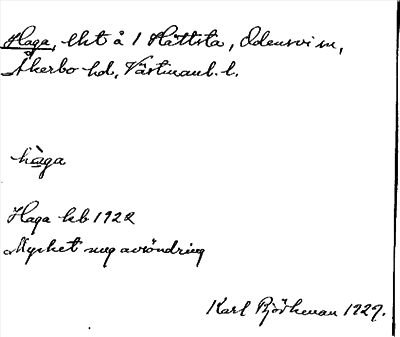 Haga, lht å 1 Hättsta, Odensvi sn,
Åkerbo hd, Västmanl. l.
hàga
Haga kb 1922
Mycket ung avsöndring
Karl Björkman 1927.